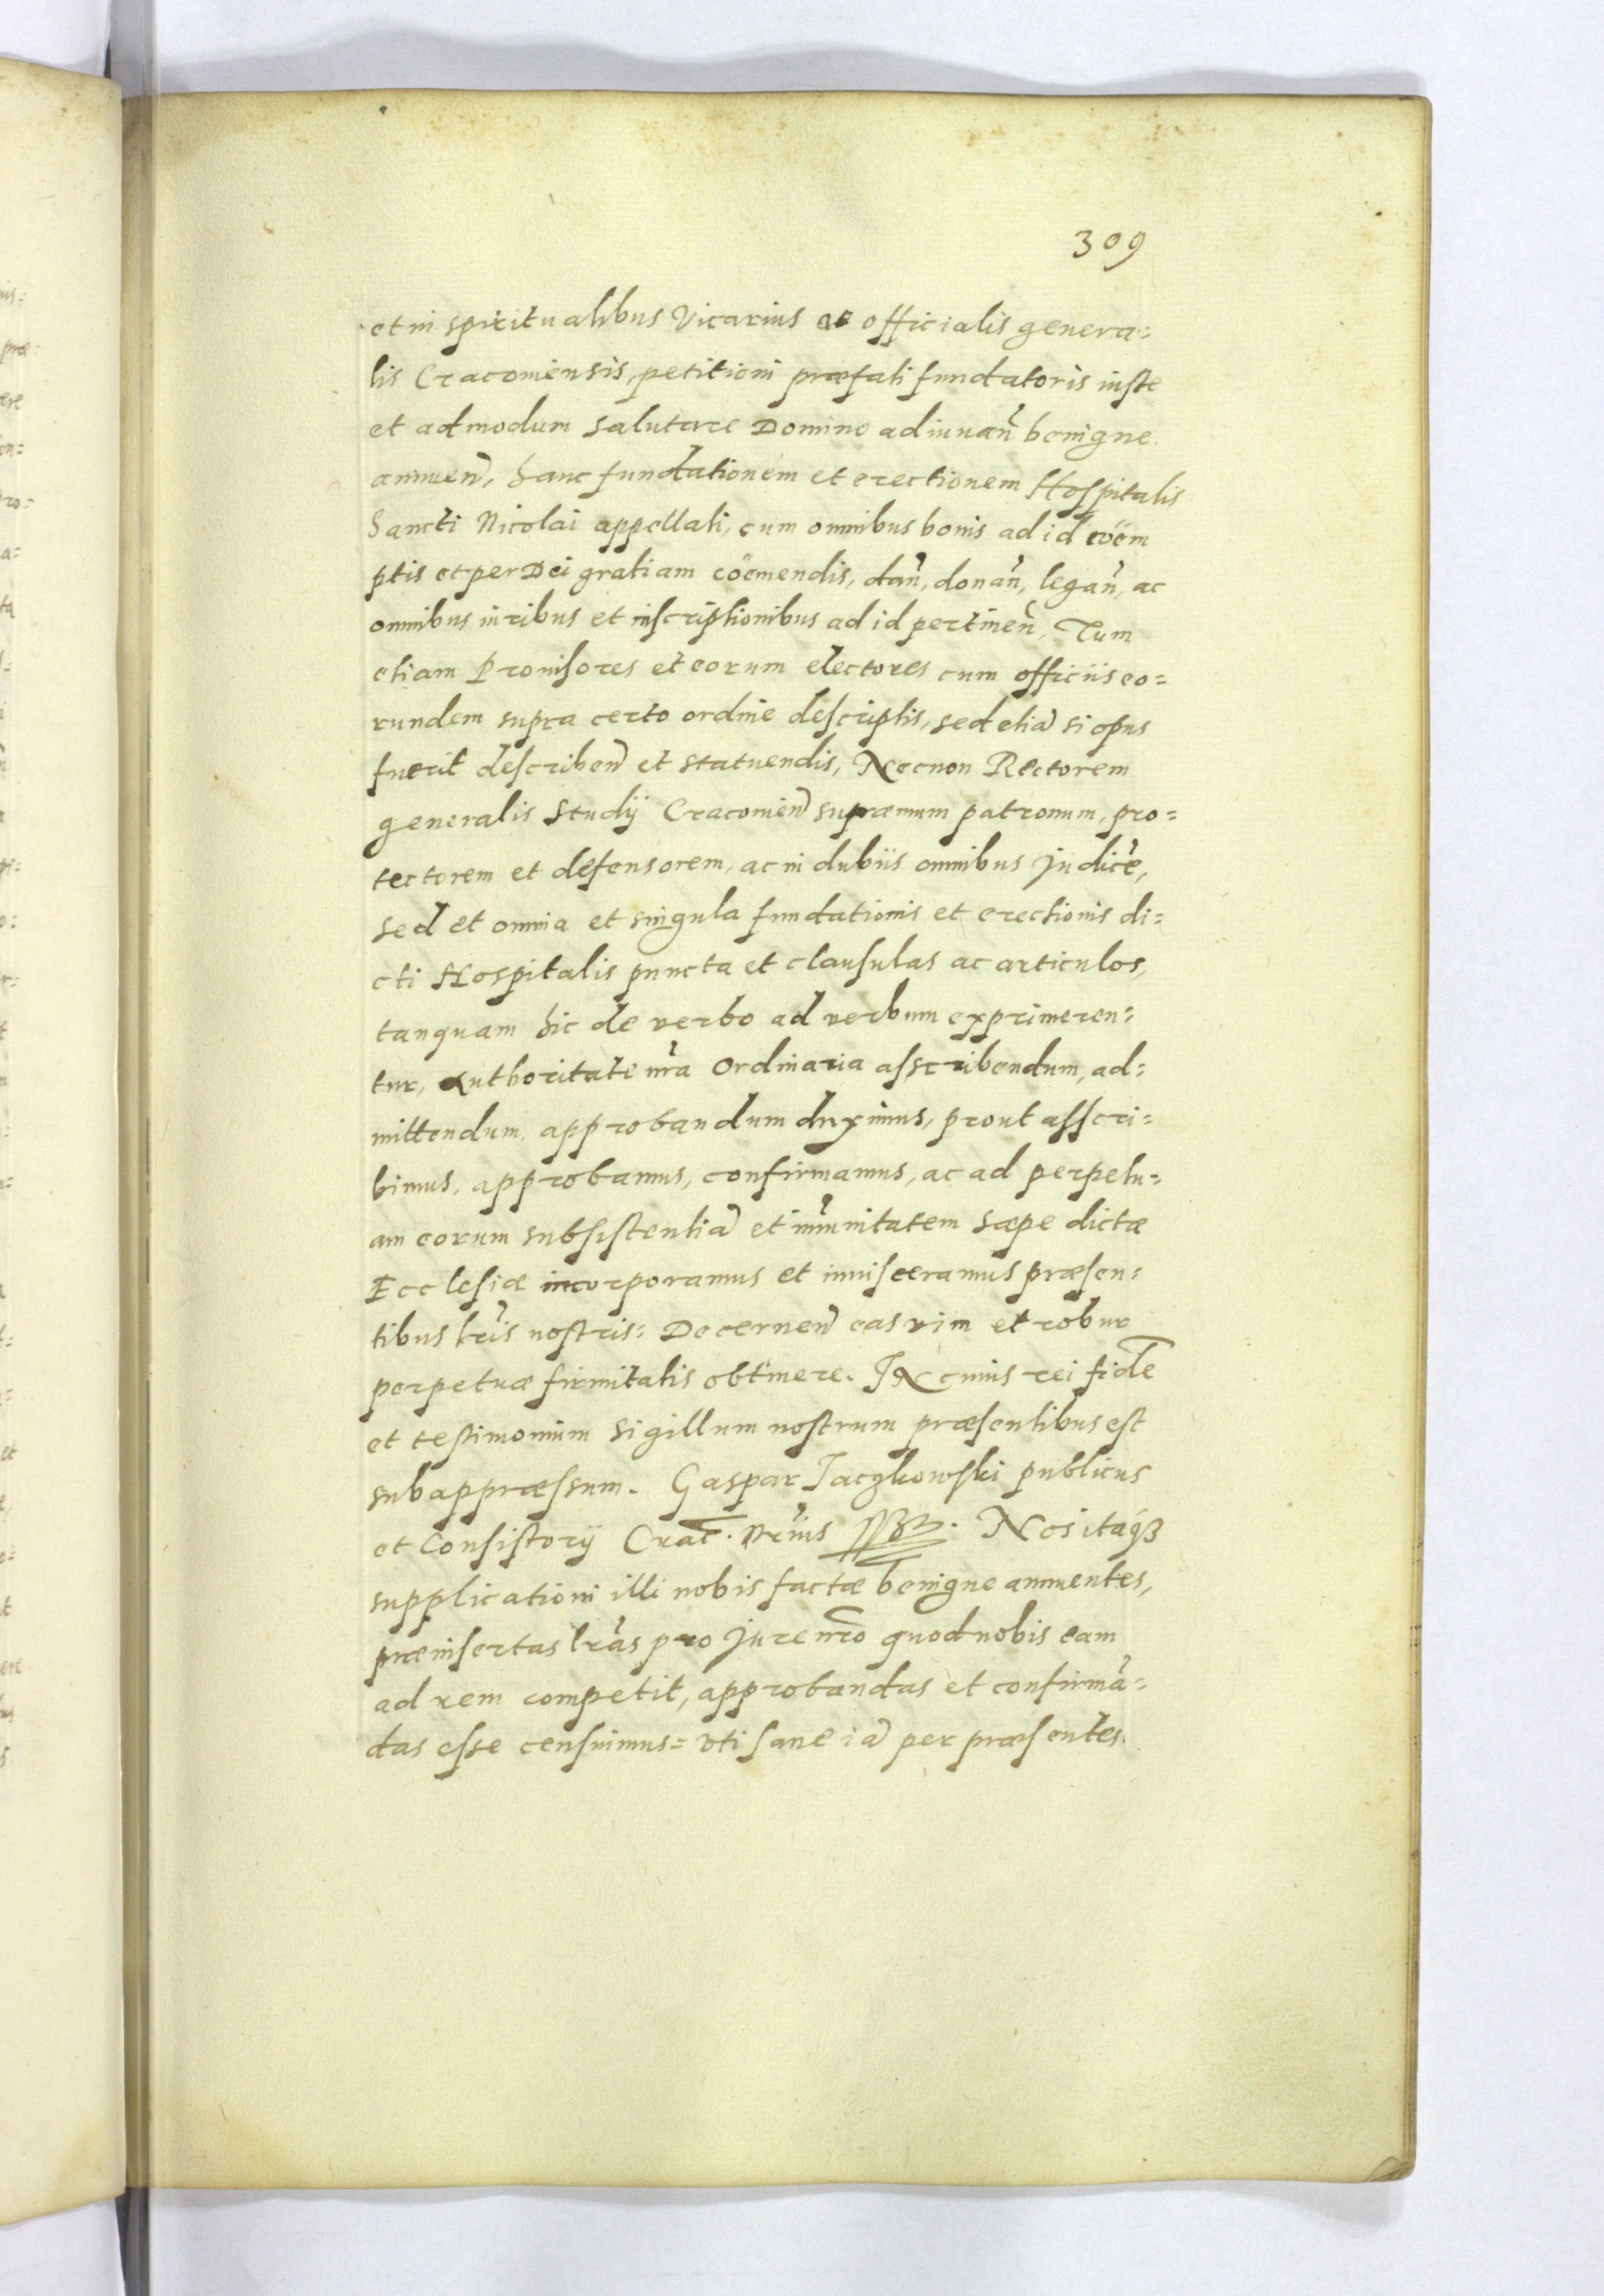 309
et in spiritualibus Vicarius ac officialis genera=
lis Cracoviensis, petitioni præfati fundatoris iuste
et admodum salutare Domino adiuuan̄ benigne
annuen̄, hanc fundationem et erectionem Hospitalis
Sancti Nicolai appellati, cum omnibus bonis ad id cöem
ptis et per Dei gratiam cöemendis, dan̄, donan̄, legan̄, ac
omnibus iuribus et inscriptionibus ad id pertinen̄, Tum
etiam Prouisores et eorum electores cum officiis eo=
rundem supra certo ordine descriptis, sed etiā si opus
fuerit describen̄ et statuendis, Necnon Rectorem
generalis Studij Cracouien̄ supræmum patronum, pro=
tectorem et defensorem, ac in dubiis omnibus Judicē,
sed et omnia et singula fundationis et erectionis di=
cti Hospitalis puncta et clausulas ac articulos,
tanquam hic de verbo ad verbum exprimeren=
tur, Authoritate nr̄a Ordinaria asscribendum, ad=
mittendum, approbandum duximus, prout asscri=
bimus, approbamus, confirmamus, ac ad perpetu=
am eorum subsistentiā et im̄unitatem sæpe dictæ
Ecclesiæ incorporamus et inuisceramus præsen=
tibus lr̄is nostris: Decernen̄ eas vim et robur
perpetuæ firmitatis obtinere. IN cuius rei fidē
et testimonium Sigillum nostrum præsentibus est
subappræssum. Gaspar Jaczkowski publicus
et Consistorij Crac̄. Nr̄ius Nos itaq3
supplicationi illi nobis factæ benigne annuentes,
præinsertas lr̄as pro Jure nr̄o quod nobis eam
ad rem competit, approbandas et confirmā=
das esse censuimus= vti sane iā per præsentes